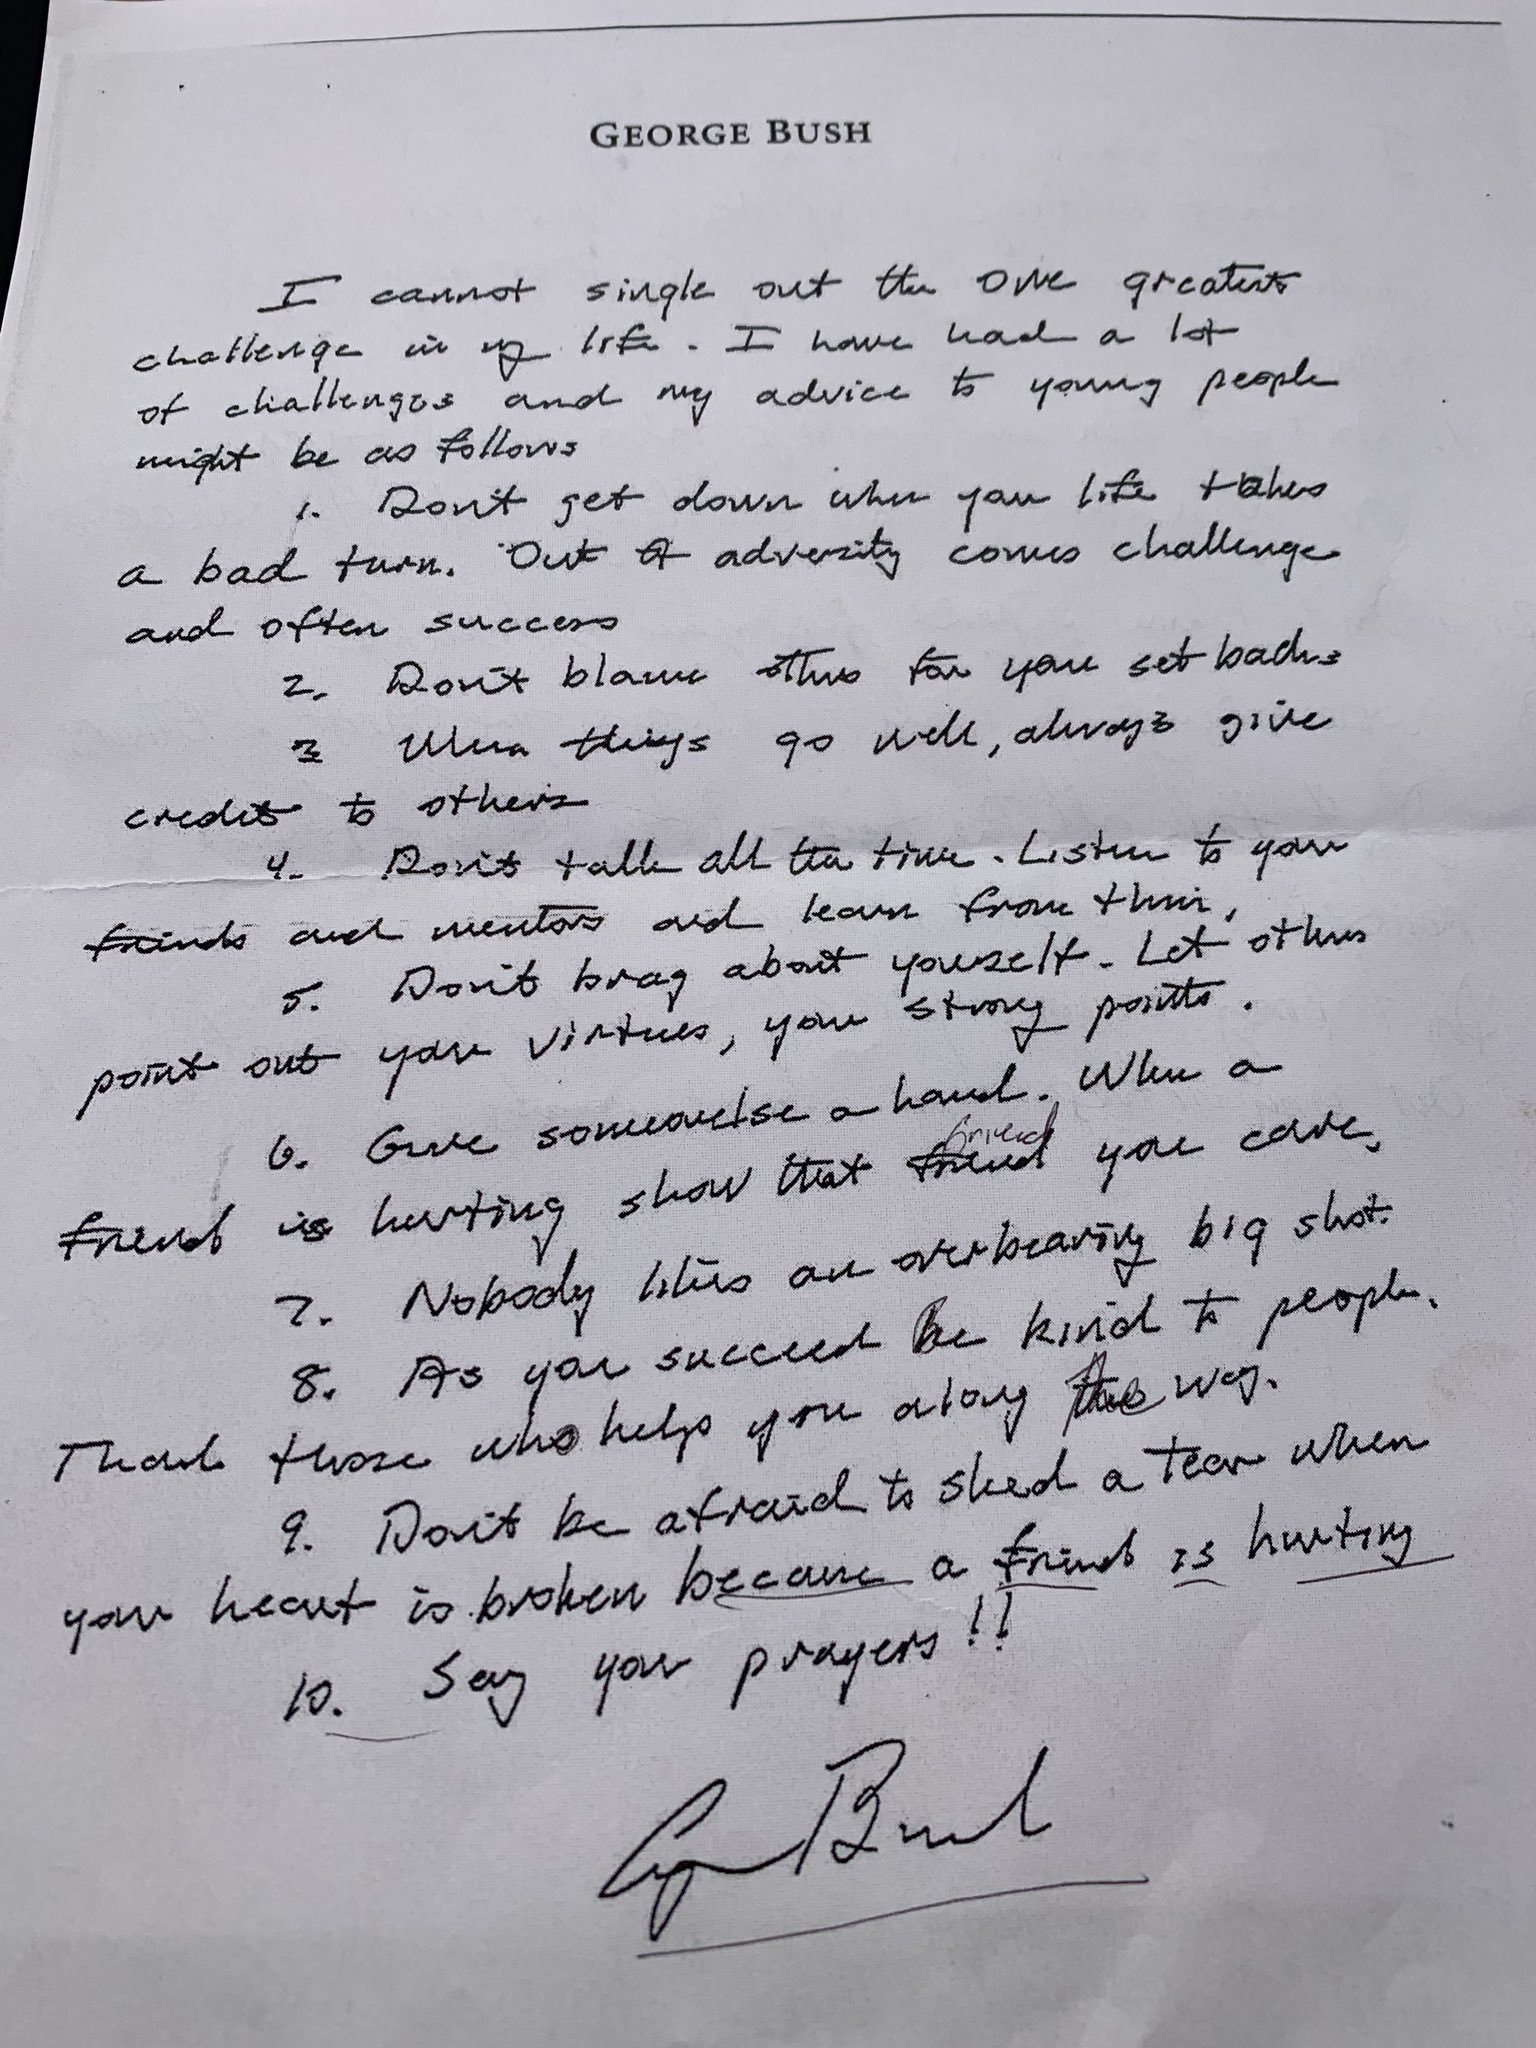 GEORGE BUSH
I cannot single out the one greatest
challenge in my life. I have had a lot
of challenges and my advice to young people
might be as follows
1. Don't get down when your life takes
a bad turn. Out of adversity comes challenge
and often success
2. Don't blame others for your setbacks
3 When things go well, always give
credit to others
4. Don't talk all the time. Listen to your
friends and mentors and learn from them.
5. Don't brag about yourself. Let others
point out your virtues, your strong points.
6. Give someone else a hand. When a
friend
friend is hurting show that friend you care.
7. Nobody likes an overbearing big shot.
8. As you succeed be kind to people.
Thank those who help you along the way.
9. Don't be afraid to shed a tear when
your heart is broken because a friend is hurting
10. Say your prayers!!
George Bush